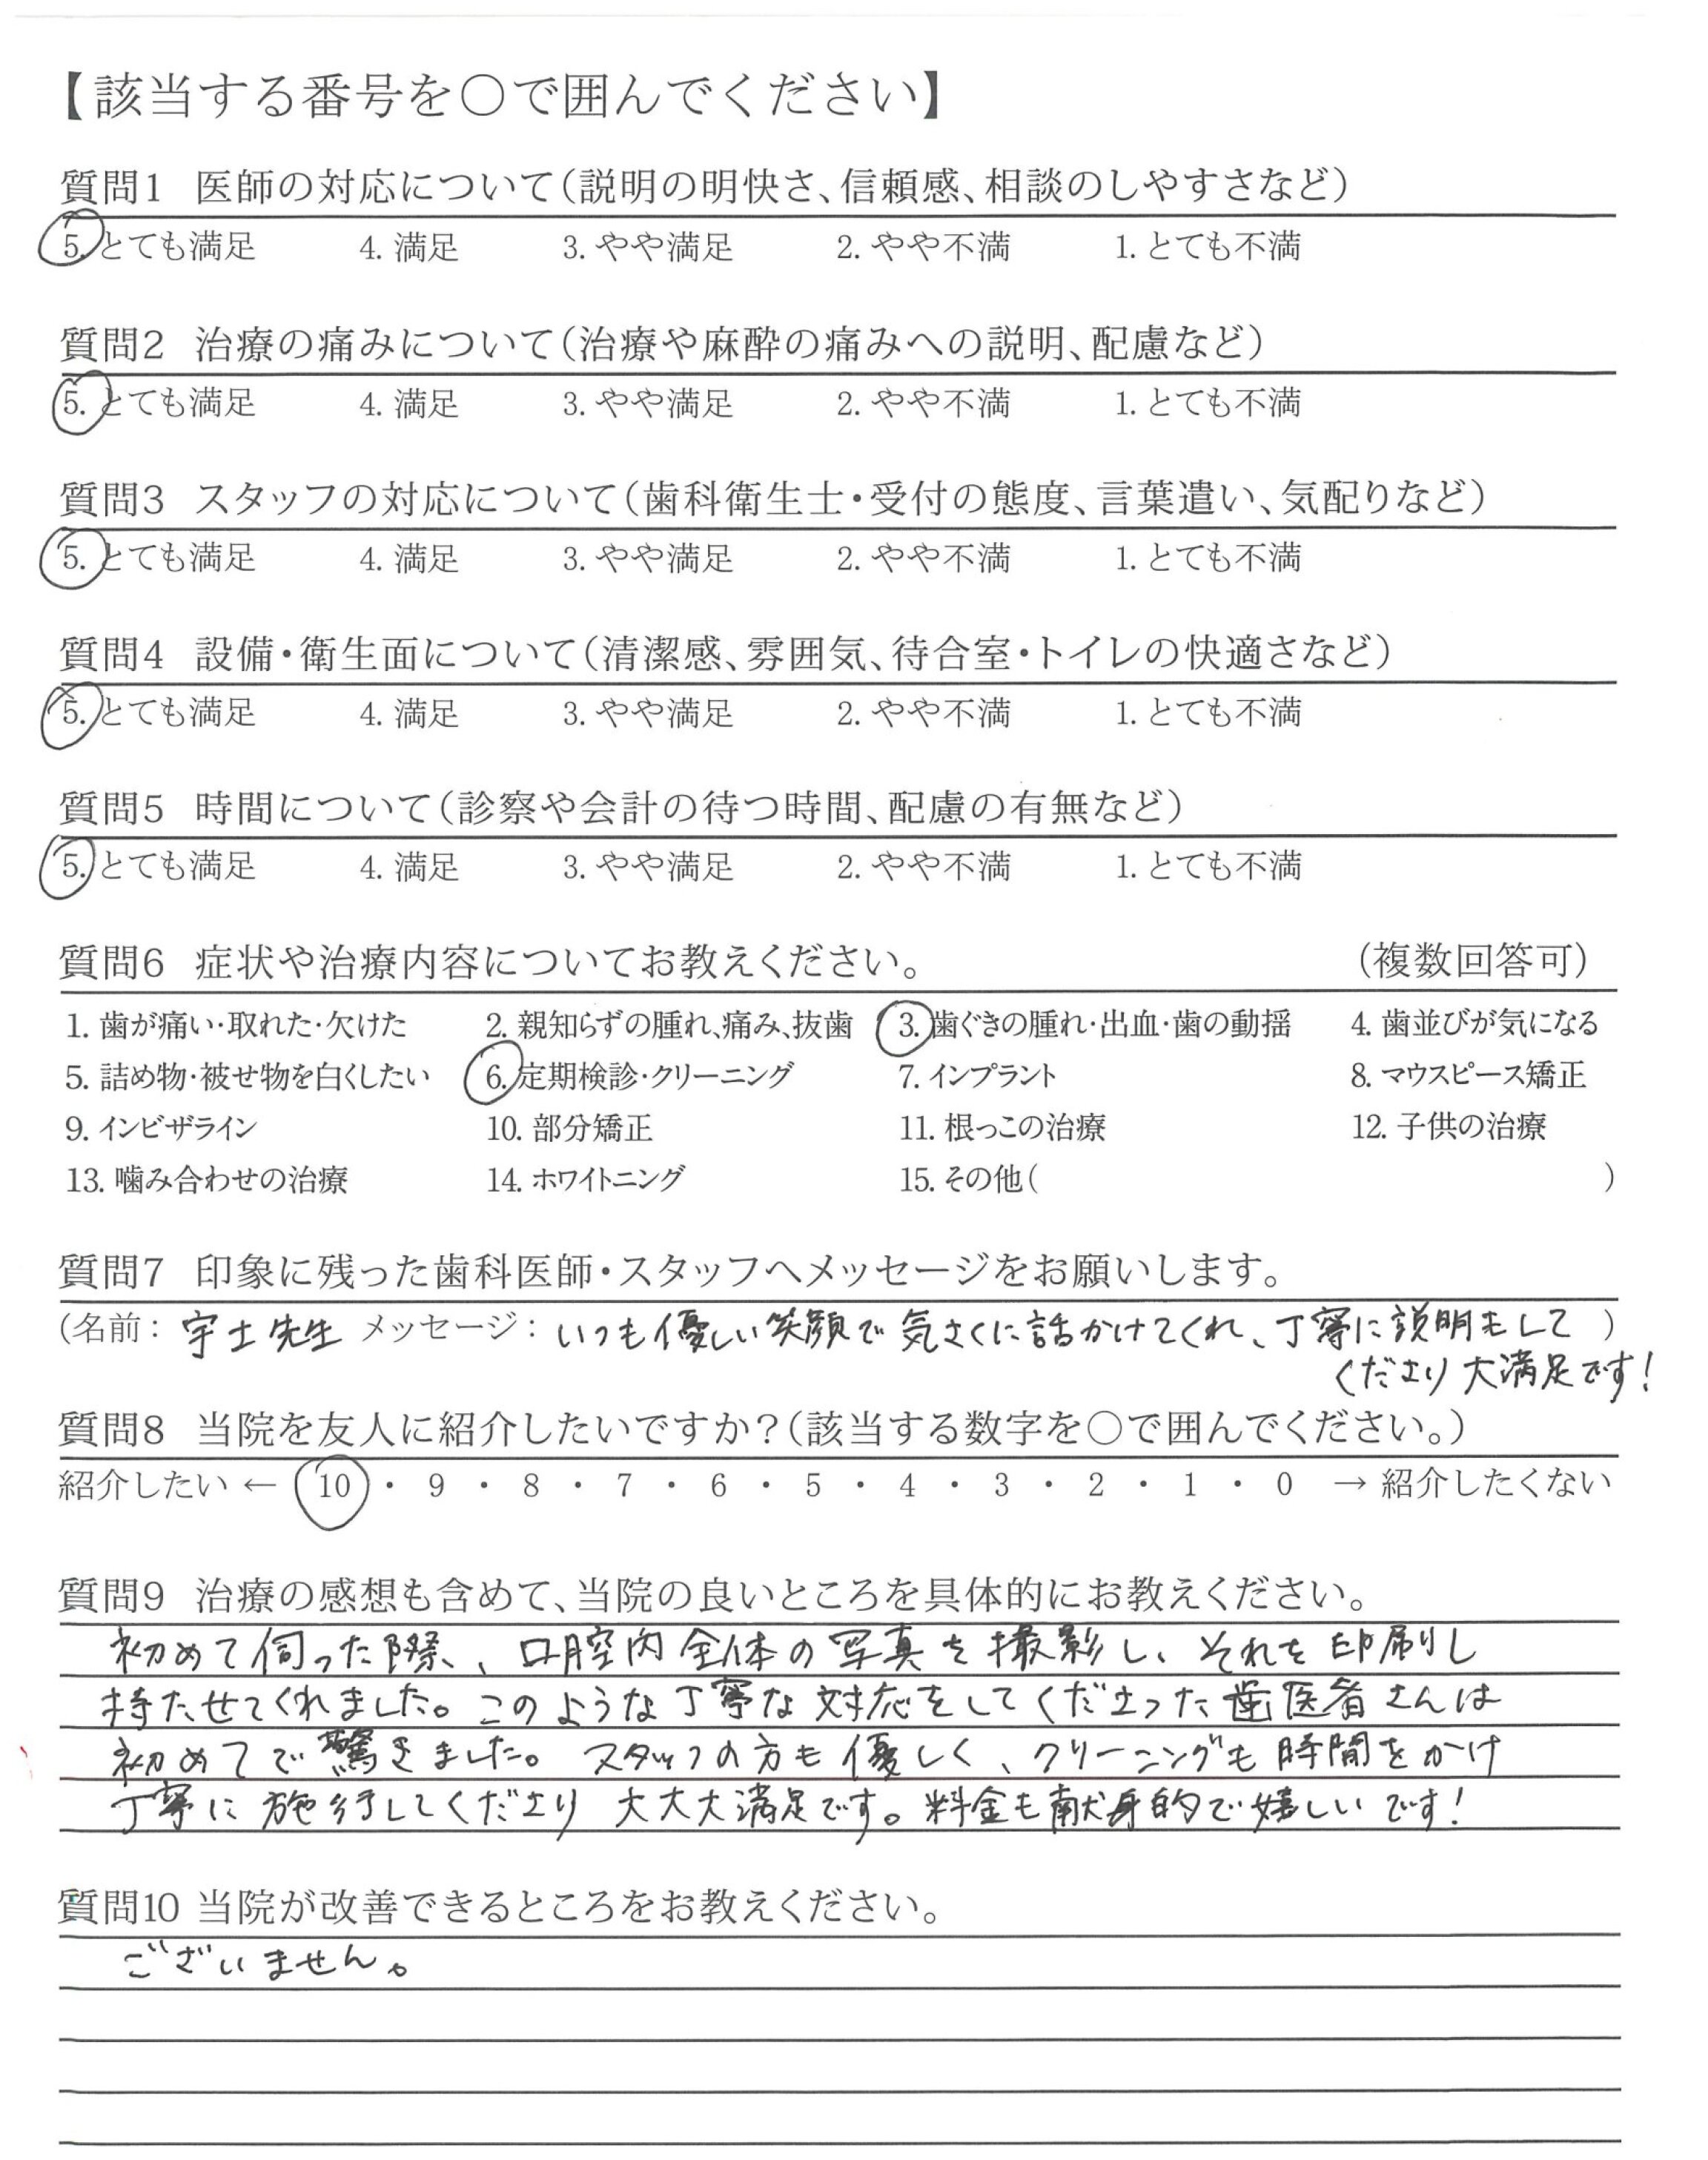 【該当する番号を○で囲んでください】
質問1 医師の対応について(説明の明快さ、信頼感、相談のしやすさなど)
5. とても満足 4. 満足 3. やや満足 2. やや不満 1. とても不満
質問2 治療の痛みについて(治療や麻酔の痛みへの説明、配慮など)
5. とても満足 4. 満足 3. やや満足 2. やや不満 1. とても不満
質問3 スタッフの対応について(歯科衛生士・受付の態度、言葉遣い、気配りなど)
5. とても満足 4. 満足 3. やや満足 2. やや不満 1. とても不満
質問4 設備・衛生面について(清潔感、雰囲気、待合室・トイレの快適さなど)
5. とても満足 4. 満足 3. やや満足 2. やや不満 1. とても不満
質問5 時間について(診察や会計の待つ時間、配慮の有無など)
5. とても満足 4. 満足 3. やや満足 2. やや不満 1. とても不満
質問6 症状や治療内容についてお教えください。 (複数回答可)
1. 歯が痛い・取れた・欠けた 2. 親知らずの腫れ、痛み、抜歯 3. 歯ぐきの腫れ・出血・歯の動揺 4. 歯並びが気になる
5. 詰め物・被せ物を白くしたい 6. 定期検診・クリーニング 7. インプラント 8. マウスピース矯正
9. インビザライン 10. 部分矯正 11. 根っこの治療 12. 子供の治療
13. 噛み合わせの治療 14. ホワイトニング 15. その他( )
質問7 印象に残った歯科医師・スタッフへメッセージをお願いします。
(名前: 宇土先生 メッセージ: いつも優しい笑顔で気さくに話かけてくれ、丁寧に説明もして )
くださり大満足です!
質問8 当院を友人に紹介したいですか?(該当する数字を○で囲んでください。)
紹介したい ← 10 ・ 9 ・ 8 ・ 7 ・ 6 ・ 5 ・ 4 ・ 3 ・ 2 ・ 1 ・ 0 → 紹介したくない
質問9 治療の感想も含めて、当院の良いところを具体的にお教えください。
初めて伺った際、口腔内全体の写真を撮影し、それを印刷し
持たせてくれました。このような丁寧な対応をしてくださった歯医者さんは
初めてで驚きました。スタッフの方も優しく、クリーニングも時間をかけ
丁寧に施行してくださり大大大満足です。料金も献身的で嬉しいです!
質問10 当院が改善できるところをお教えください。
ございません。